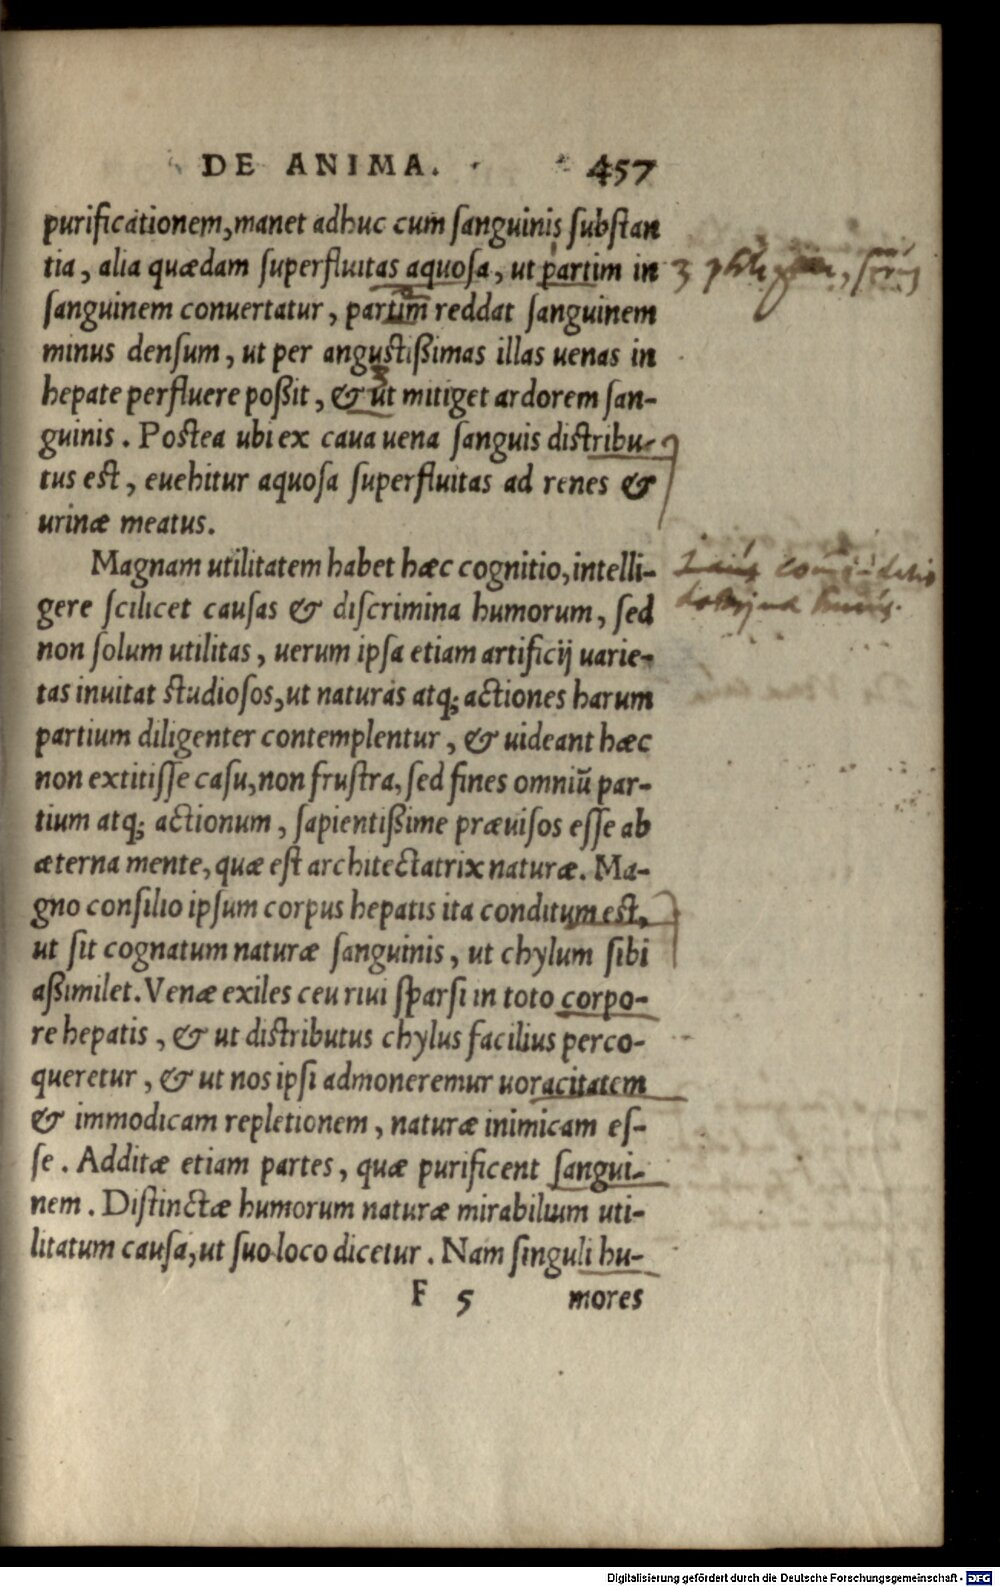 DE ANIMA. 457
purificationem, manet adhuc cum ſanguinis ſubſtan
tia, alia quædam ſuperfluitas aquoſa, ut partim in
ſanguinem conuertatur, partim reddat ſanguinem
minus denſum, ut per anguſtißimas illas uenas in
hepate perfluere poßit, & ut mitiget ardorem ſan-
guinis. Poſtea ubi ex caua uena ſanguis diſtribu-
tus eſt, euehitur aquoſa ſuperfluitas ad renes &
urinæ meatus.
Magnam utilitatem habet hæc cognitio, intelli-
gere ſcilicet cauſas & diſcrimina humorum, ſed
non ſolum utilitas, uerum ipſa etiam artificij uarie-
tas inuitat ſtudioſos, ut naturas atq; actiones harum
partium diligenter contemplentur, & uideant hæc
non extitiſſe caſu, non fruſtra, ſed fines omniũ par-
tium atq; actionum, ſapientißime præuiſos eſſe ab
æterna mente, quæ eſt architectatrix naturæ. Ma-
gno conſilio ipſum corpus hepatis ita conditum eſt,
ut ſit cognatum naturæ ſanguinis, ut chylum ſibi
aßimilet. Venæ exiles ceu riui ſparſi in toto corpo-
re hepatis, & ut diſtributus chylus facilius perco-
queretur, & ut nos ipſi admoneremur uoracitatem
& immodicam repletionem, naturæ inimicam eſ-
ſe. Additæ etiam partes, quæ purificent ſangui-
nem. Diſtinctæ humorum naturæ mirabilium uti-
litatum cauſa, ut ſuo loco dicetur. Nam ſinguli hu-
F 5 mores
Digitalisierung gefördert durch die Deutsche Forschungsgemeinschaft - DFG